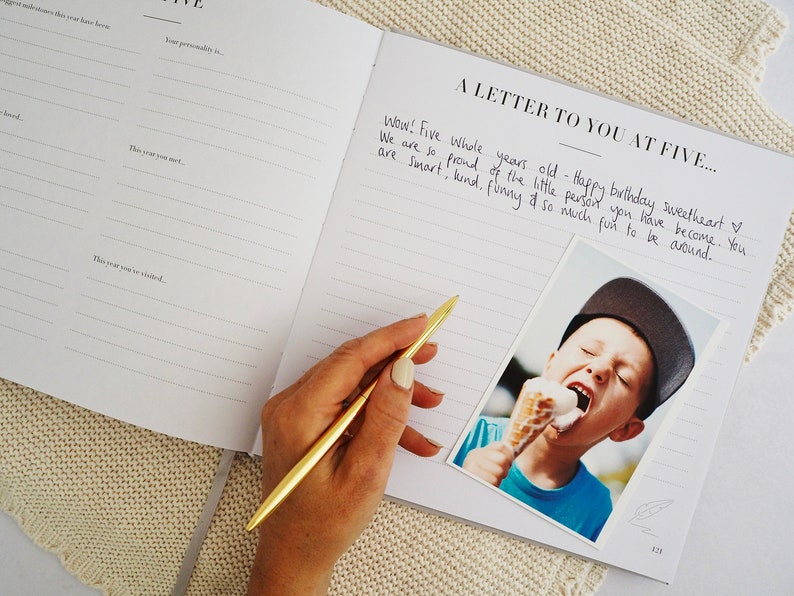 FIVE
biggest milestones this year have been:
Your personality is...
loved...
This year you met...
This year you've visited...
A LETTER TO YOU AT FIVE...
WOW! Five whole years old - Happy birthday sweetheart ♡
We are so proud of the little person you have become. You
are smart, kind, funny & so much fun to be around.
121